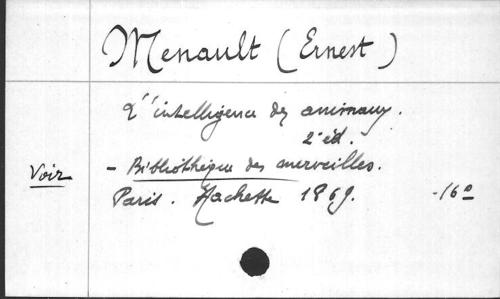 Menault (Ernest)
L'intelligence des animaux.
2e éd.
Voir - Bibliothèque des merveilles.
Paris. Hachette 1869. -16º